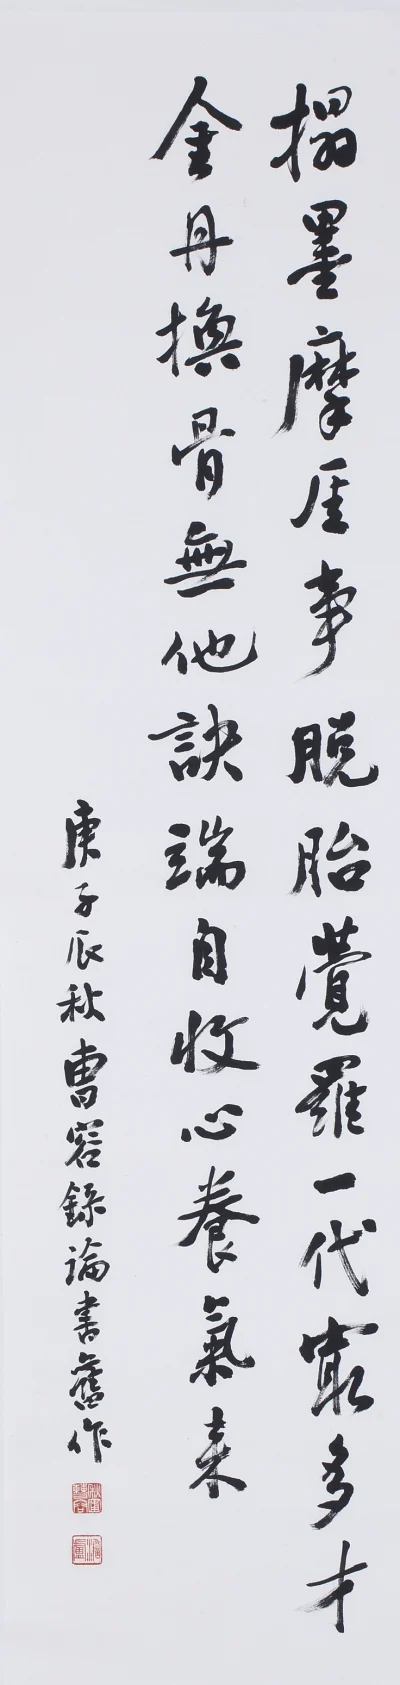 搨墨摩厓事脫胎覺羅一代㝡多才
金丹換骨無他訣端自收心養氣來
庚子辰秋曹容錄論書舊作